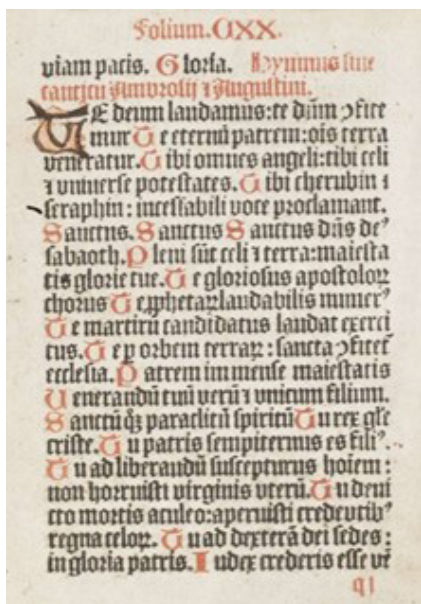 Folium. CXX.
viam pacis. Gloria. Hymnus siue
canticū Ambrosij ⁊ Augustini.
TE deum laudamus: te dn̄m ꝯfite
mur Te eternū patrem: oīs terra
veneratur. Tibi omnes angeli: tibi celi
⁊ vniuerse potestates. Tibi cherubin ⁊
seraphin: incessabili voce proclamant.
Sanctus. Sanctus Sanctus dn̄s deꝰ
sabaoth. Pleni sūt celi ⁊ terra: maiesta
tis glorie tue. Te gloriosus apostoloꝝ
chorus Te ꝓphetaꝝ laudabilis numerꝰ
Te martirū candidatus laudat exerci
tus. Te ꝑ orbem terraꝝ: sancta ꝯfitet᷑
ecclesia. Patrem immense maiestatis
Venerandū tuū verū ⁊ vnicum filium.
Sanctū qꝫ paraclitū spiritū Tu rex gl̄e
criste. Tu patris sempiternus es filiꝰ.
Tu ad liberandū suscepturus hoīem:
non horruisti virginis vterū. Tu deui
cto mortis aculeo: aperuisti credētibꝰ
regna celoꝝ. Tu ad dexterā dei sedes:
in gloria patris. Iudex crederis esse vē
q1